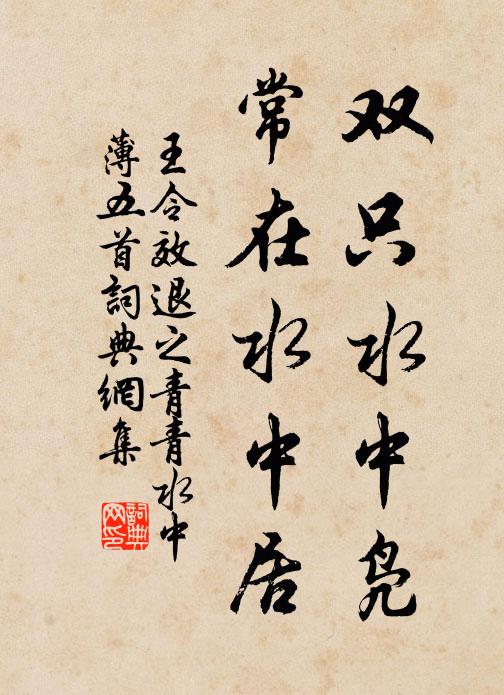 双只水中凫
常在水中居
王令效退之青青水中
薄五首詞典網集
詞典网印